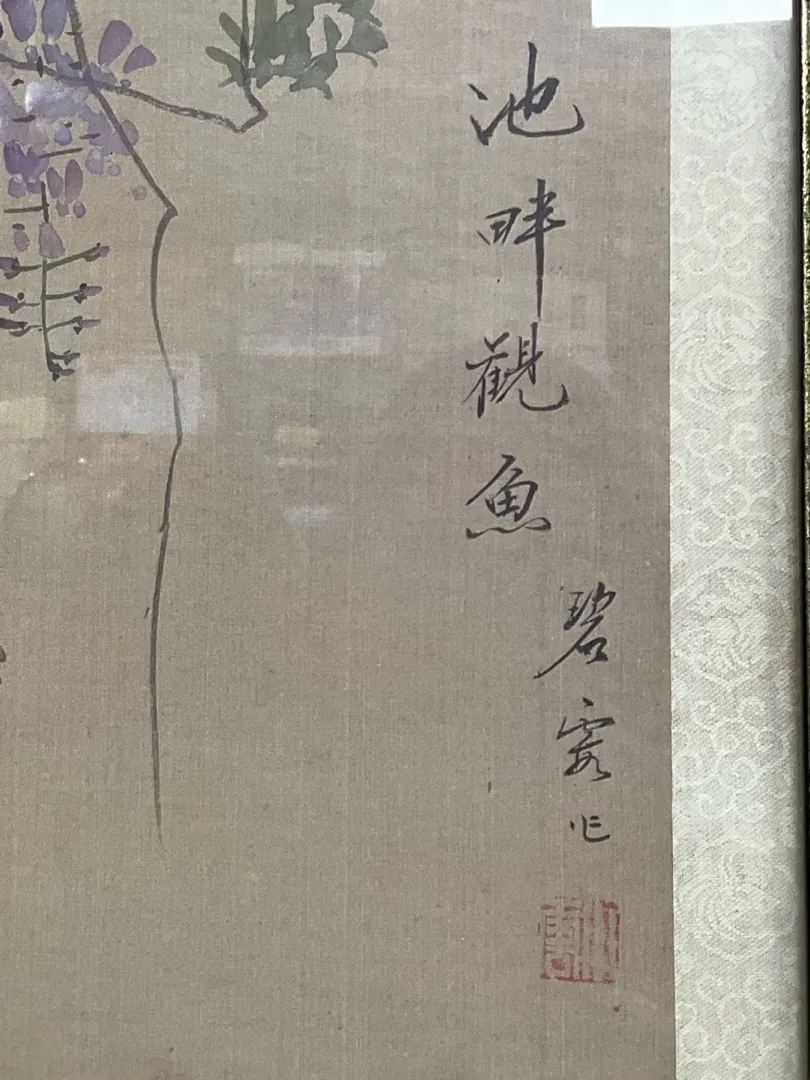 池畔觀魚
碧霞作